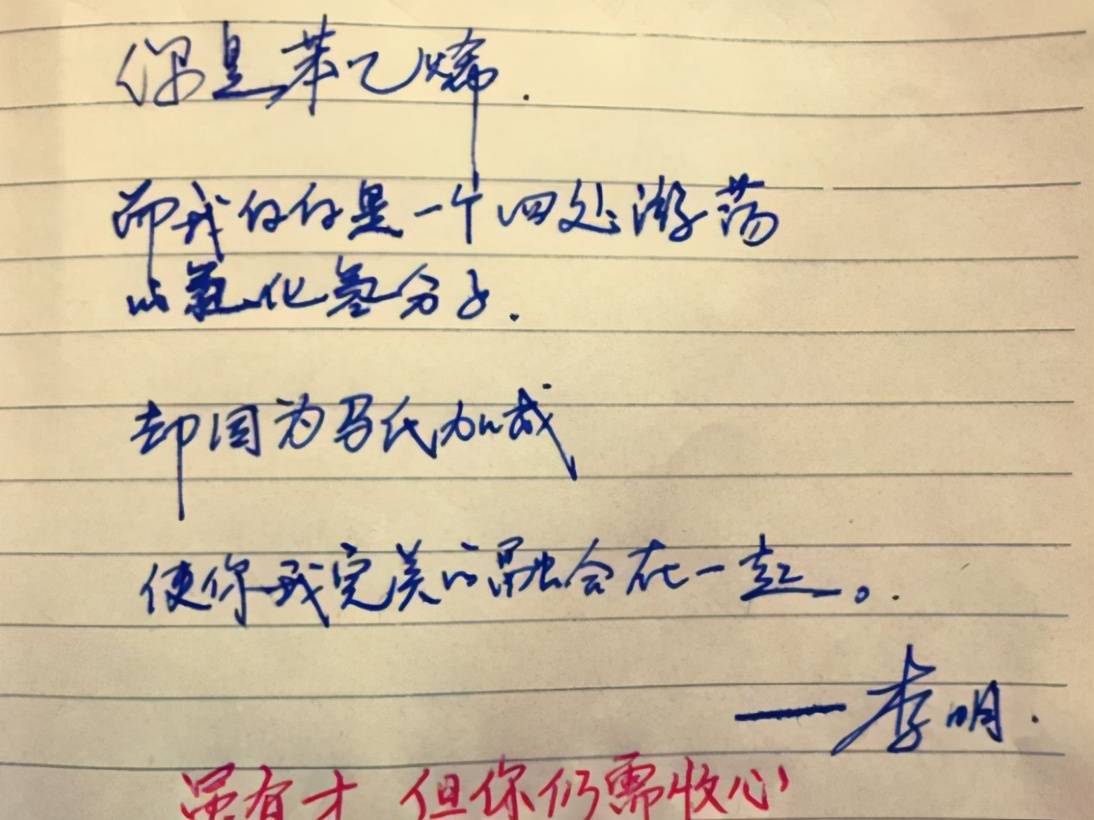 你是苯乙烯.
而我仅仅是一个四处游荡
的氯化氢分子.
却因为马氏加成
使你我完美的融会在一起。.
——李明.
虽有才 但你仍需收心